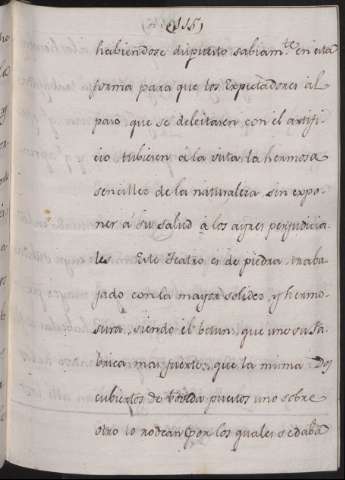 (115)
habiendose dispuesto sabiam.te en esta
forma para que los Expectadores al
paso que se deleitaren con el artifi
cio tubiesen á la vista la hermosa
sencillez de la naturaleza sin expo
ner á su salud á los ayres perjudicia-
les Este Teatro es de piedra, traba
jado con la mayor solidez, y hermo
sura, siendo el betun, que une su fa
brica mas fuerte, que la misma. Dos
cubiertos de boveda puestos uno sobre
otro lo rodean, por los quales se daba